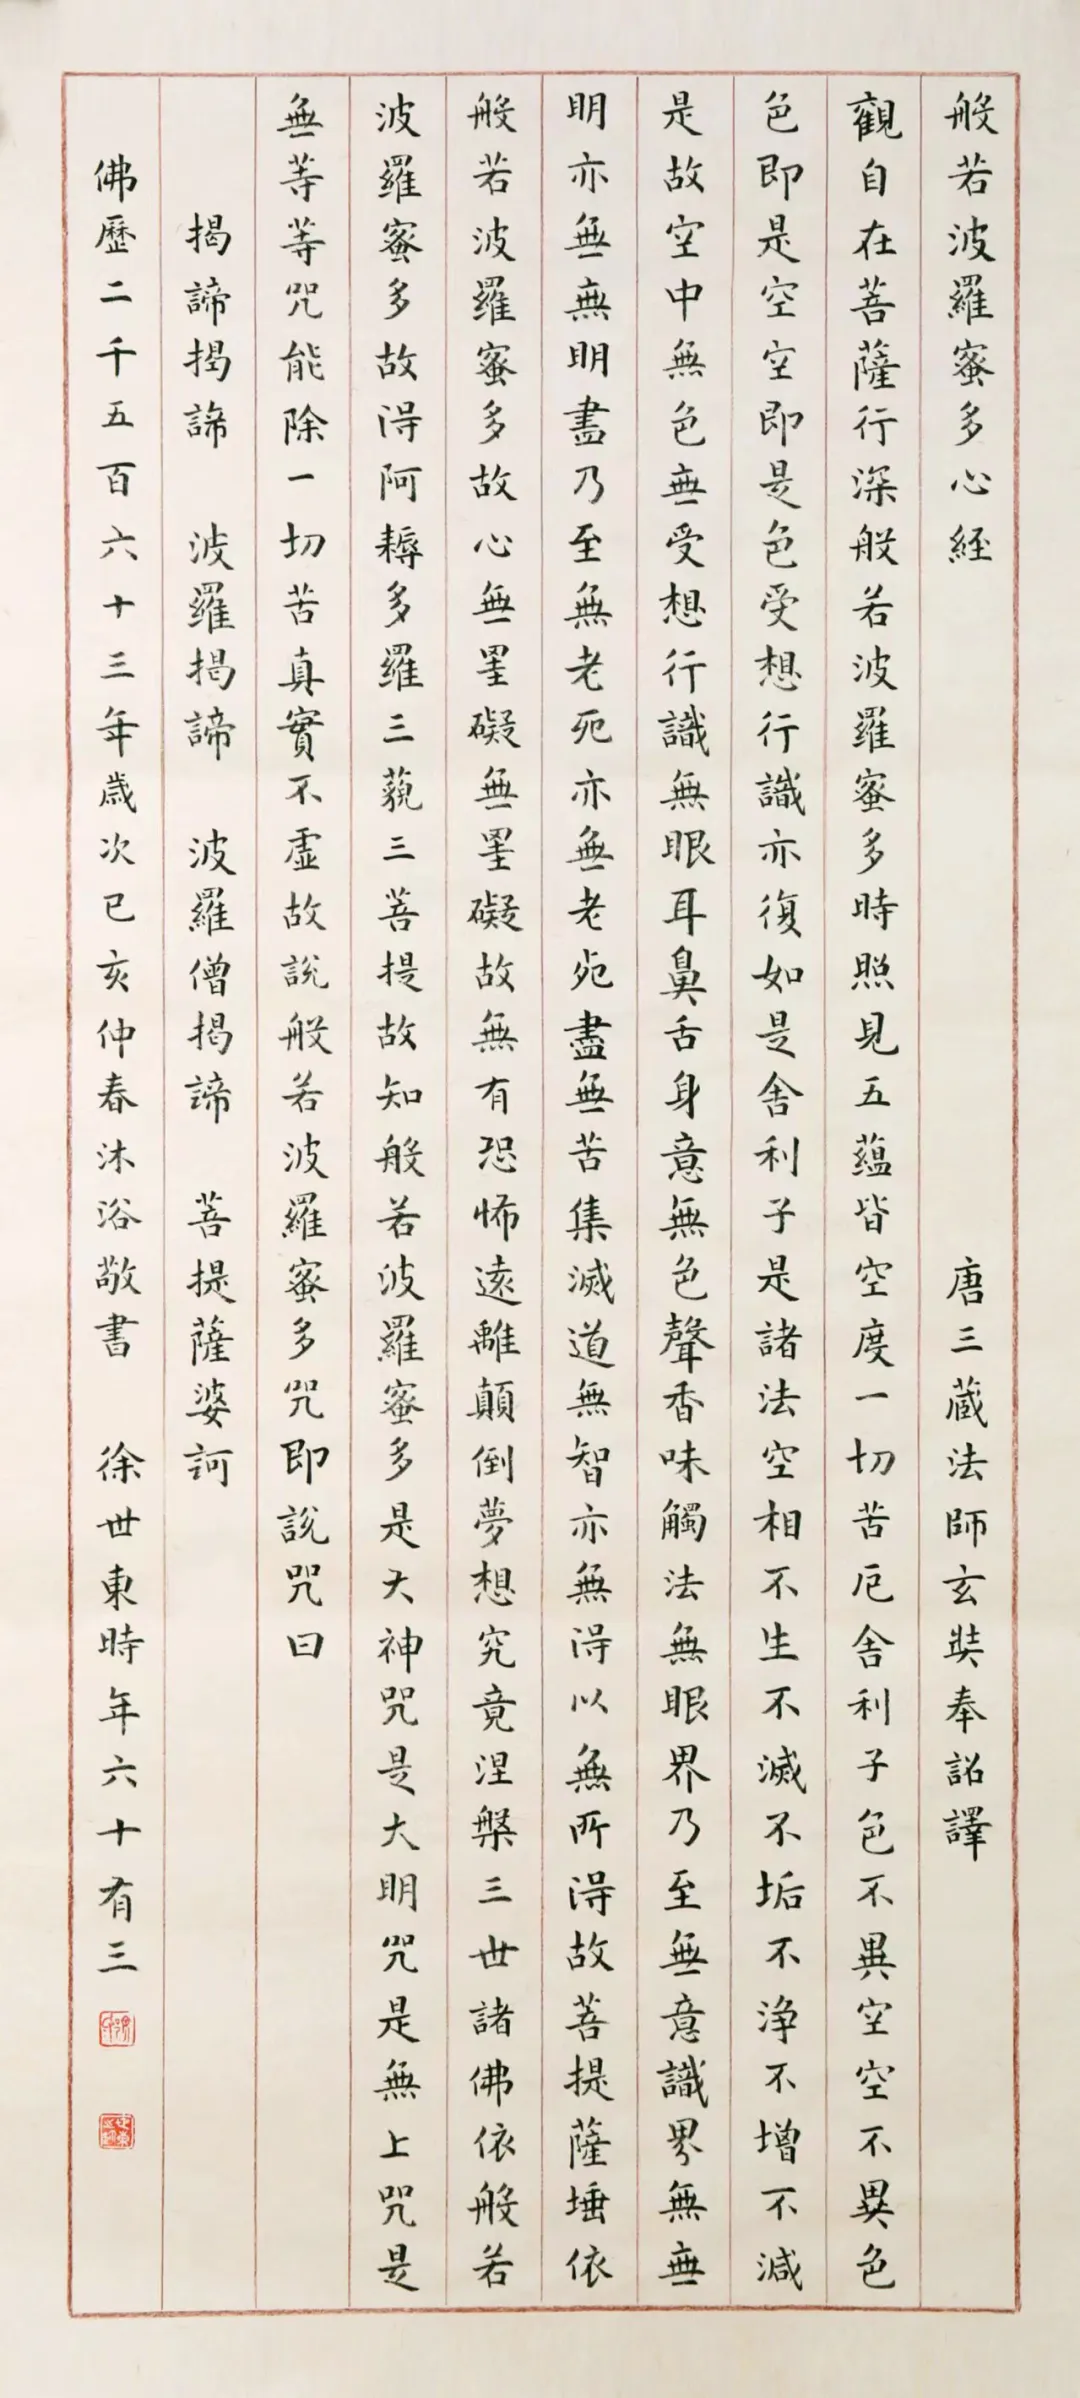 般若波羅蜜多心經 唐三藏法師玄奘奉詔譯
觀自在菩薩行深般若波羅蜜多時照見五蘊皆空度一切苦厄舍利子色不異空空不異色
色即是空空即是色受想行識亦復如是舍利子是諸法空相不生不滅不垢不淨不增不減
是故空中無色無受想行識無眼耳鼻舌身意無色聲香味觸法無眼界乃至無意識界無無
明亦無無明盡乃至無老死亦無老死盡無苦集滅道無智亦無得以無所得故菩提薩埵依
般若波羅蜜多故心無罣礙無罣礙故無有恐怖遠離顛倒夢想究竟涅槃三世諸佛依般若
波羅蜜多故得阿耨多羅三藐三菩提故知般若波羅蜜多是大神咒是大明咒是無上咒是
無等等咒能除一切苦真實不虛故說般若波羅蜜多咒即說咒曰
揭諦揭諦 波羅揭諦 波羅僧揭諦 菩提薩婆訶
佛歷二千五百六十三年歲次己亥仲春沐浴敬書 徐世東時年六十有三